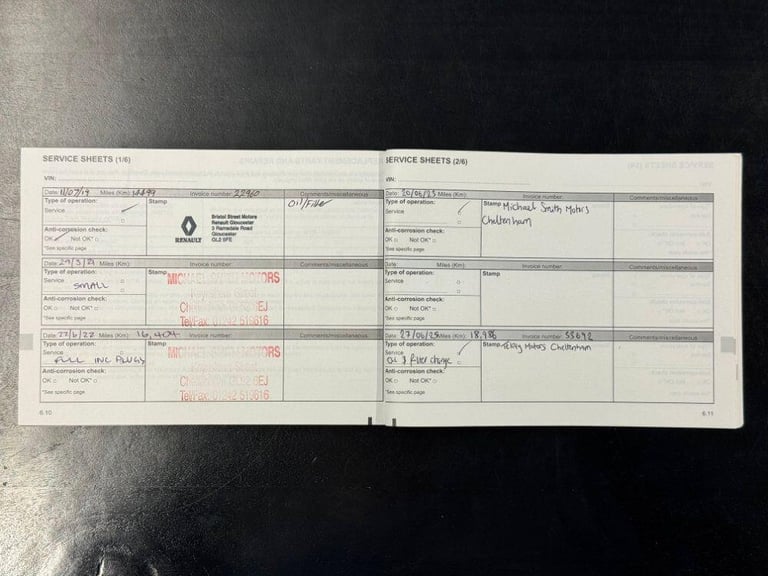 SERVICE SHEETS (1/6)
VIN:
Date: 11/07/19 Miles (Km): 14499 Invoice number: 22960 Comments/miscellaneous
Type of operation: Stamp Oil/Filter
Service ✓
RENAULT
Bristol Street Motors
Renault Gloucester
3 Ramsdale Road
Gloucester
GL2 5FE
Anti-corrosion check:
OK ✓ Not OK*
*See specific page
Date: 29/3/21 Miles (Km): Invoice number: Comments/miscellaneous
Type of operation: Stamp
Service
SMALL
MOTORS
Tel/Fax: 01242 515616
Anti-corrosion check:
OK Not OK*
*See specific page
Date: 22/6/22 Miles (Km): 16,404 Invoice number: Comments/miscellaneous
Type of operation: Stamp
Service
FULL INC PLUGS
MOTORS
Tel/Fax: 01242 515616
Anti-corrosion check:
OK Not OK*
*See specific page
6.10
SERVICE SHEETS (2/6)
VIN:
Date: 20/06/23 Miles (Km): Invoice number: Comments/miscellaneous
Type of operation: Stamp Michael Smith Motors
Service ✓
Cheltenham
Anti-corrosion check:
OK Not OK*
*See specific page
Date: Miles (Km): Invoice number: Comments/miscellaneous
Type of operation: Stamp
Service
Anti-corrosion check:
OK Not OK*
*See specific page
Date: 27/06/25 Miles (Km): 18,986 Invoice number: 33692 Comments/miscellaneous
Type of operation: Stamp Motors Cheltenham
Service ✓
Oil & filter change
Anti-corrosion check:
OK Not OK*
*See specific page
6.11